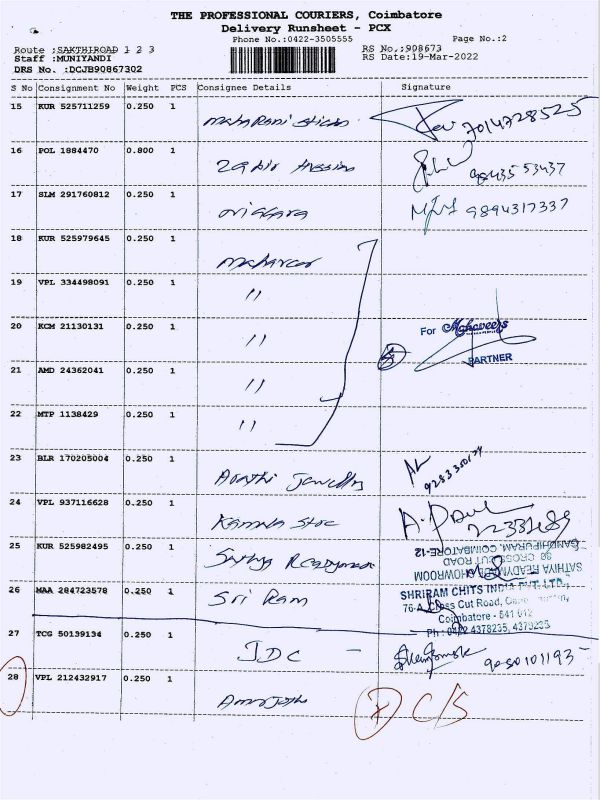 THE PROFESSIONAL COURIERS, Coimbatore
Delivery Runsheet - PCX
Phone No.:0422-3505555 Page No.:2
Route :SAKTHIROAD 1 2 3 RS No.:908673
Staff :MUNIYANDI RS Date:19-Mar-2022
DRS No. :DCJB90867302
S No Consignment No Weight PCS Consignee Details Signature
15 KUR 525711259 0.250 1
Maharani 7014728525
16 POL 1884470 0.800 1
Zakir Hussain 9843553437
17 SLM 291760812 0.250 1
9894317337
18 KUR 525979645 0.250 1
19 VPL 334498091 0.250 1
"
20 KCM 21130131 0.250 1
" For Mahaveers
PARTNER
21 AMD 24362041 0.250 1
"
22 MTP 1138429 0.250 1
"
23 BLR 170205004 0.250 1
Arathi Jewellers
24 VPL 937116628 0.250 1
Kamala Stoc
25 KUR 525982495 0.250 1
Sathya Readymade
SATHIYA READYMADE SHOWROOM
90 CROSS CUT ROAD
GANDHIPURAM, COIMBATORE-12
26 MAA 284723578 0.250 1
Sri Ram
SHRIRAM CHITS INDIA PVT. LTD.,
76-A, Cross Cut Road,
Coimbatore - 641 012
Ph : 0422 4378235, 4379235
27 TCG 50139134 0.250 1
IDC - 9050101193
28 VPL 212432917 0.250 1
C/S